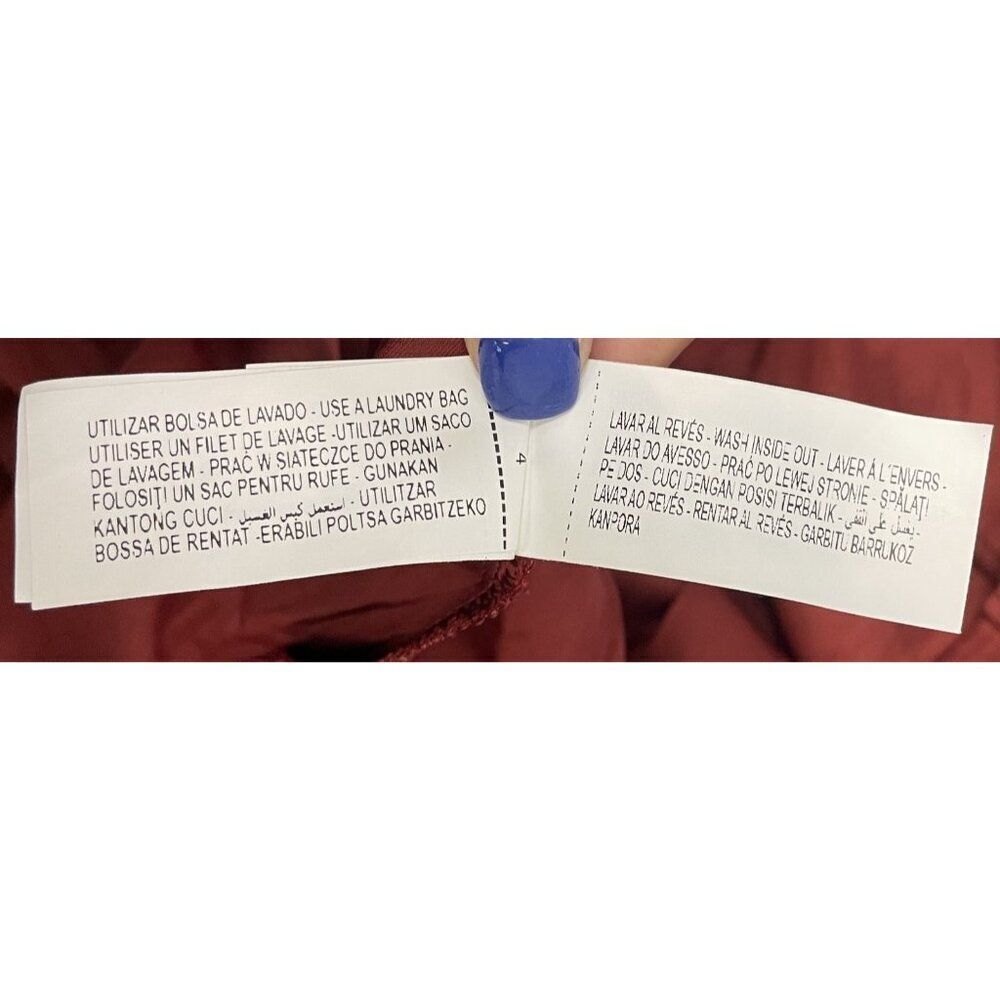 UTILIZAR BOLSA DE LAVADO - USE A LAUNDRY BAG
UTILISER UN FILET DE LAVAGE -UTILIZAR UM SACO
DE LAVAGEM - PRAĆ W SIATECZCE DO PRANIA -
FOLOSIŢI UN SAC PENTRU RUFE - GUNAKAN
KANTONG CUCI - استعمل كيس الغسيل - UTILITZAR
BOSSA DE RENTAT -ERABILI POLTSA GARBITZEKO
4
LAVAR AL REVÉS - WASH INSIDE OUT - LAVER Á L'ENVERS -
LAVAR DO AVESSO - PRAĆ PO LEWEJ STRONIE - SPĂLAŢI
PE DOS - CUCI DENGAN POSISI TERBALIK - يغسل على القفى -
LAVAR AO REVÉS - RENTAR AL REVÉS - GARBITU BARRUKOZ
KANPORA